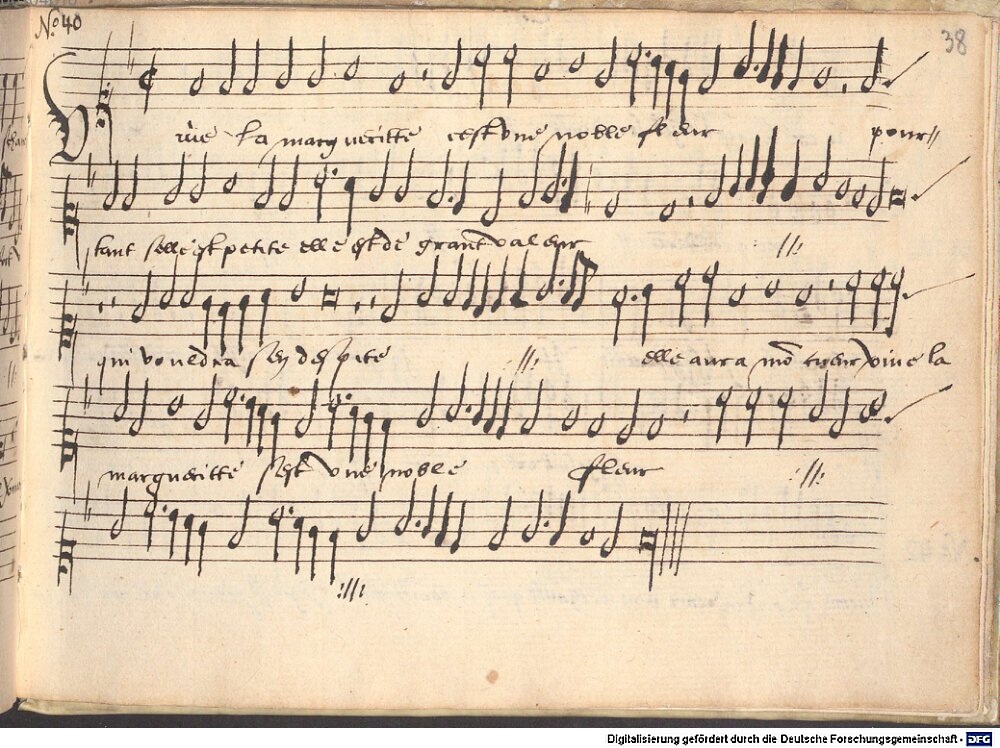 No 40
38
Viue la margueritte cest vne noble fleur pour
tant selle est petite elle est de grant valeur
qui vouldra sen despite elle aura mō cueur viue la
margueritte sest vne noble fleur
Digitalisierung gefördert durch die Deutsche Forschungsgemeinschaft - DFG